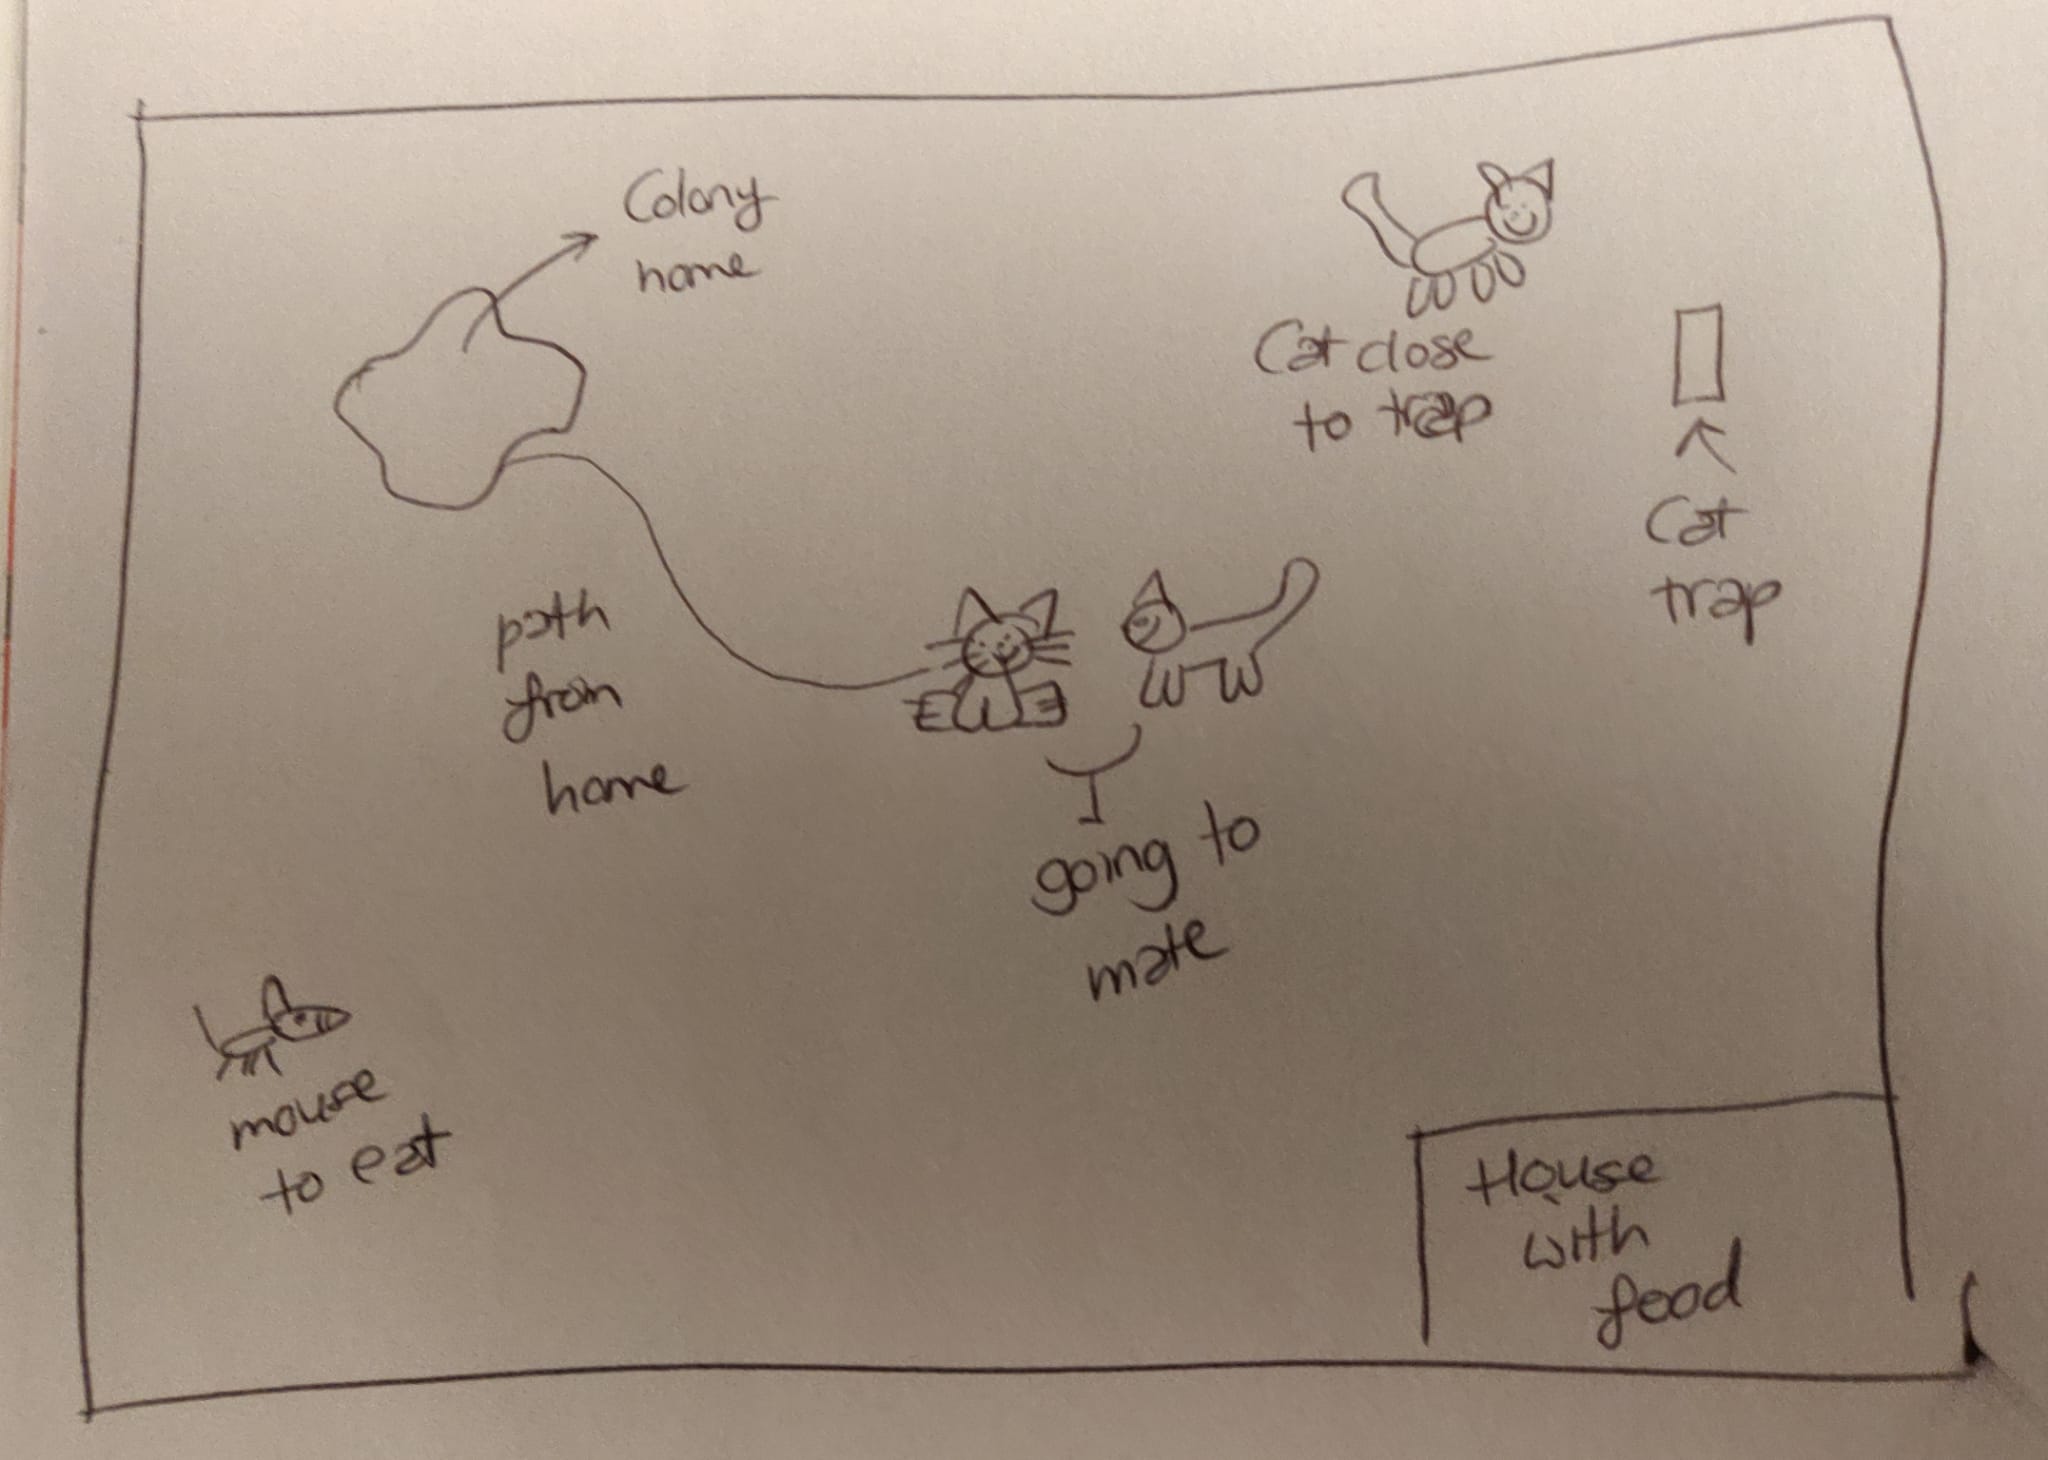 Colony
home
Cat close
to trap
Cat
trap
path
from
home
going to
mate
mouse
to eat
House
with
food